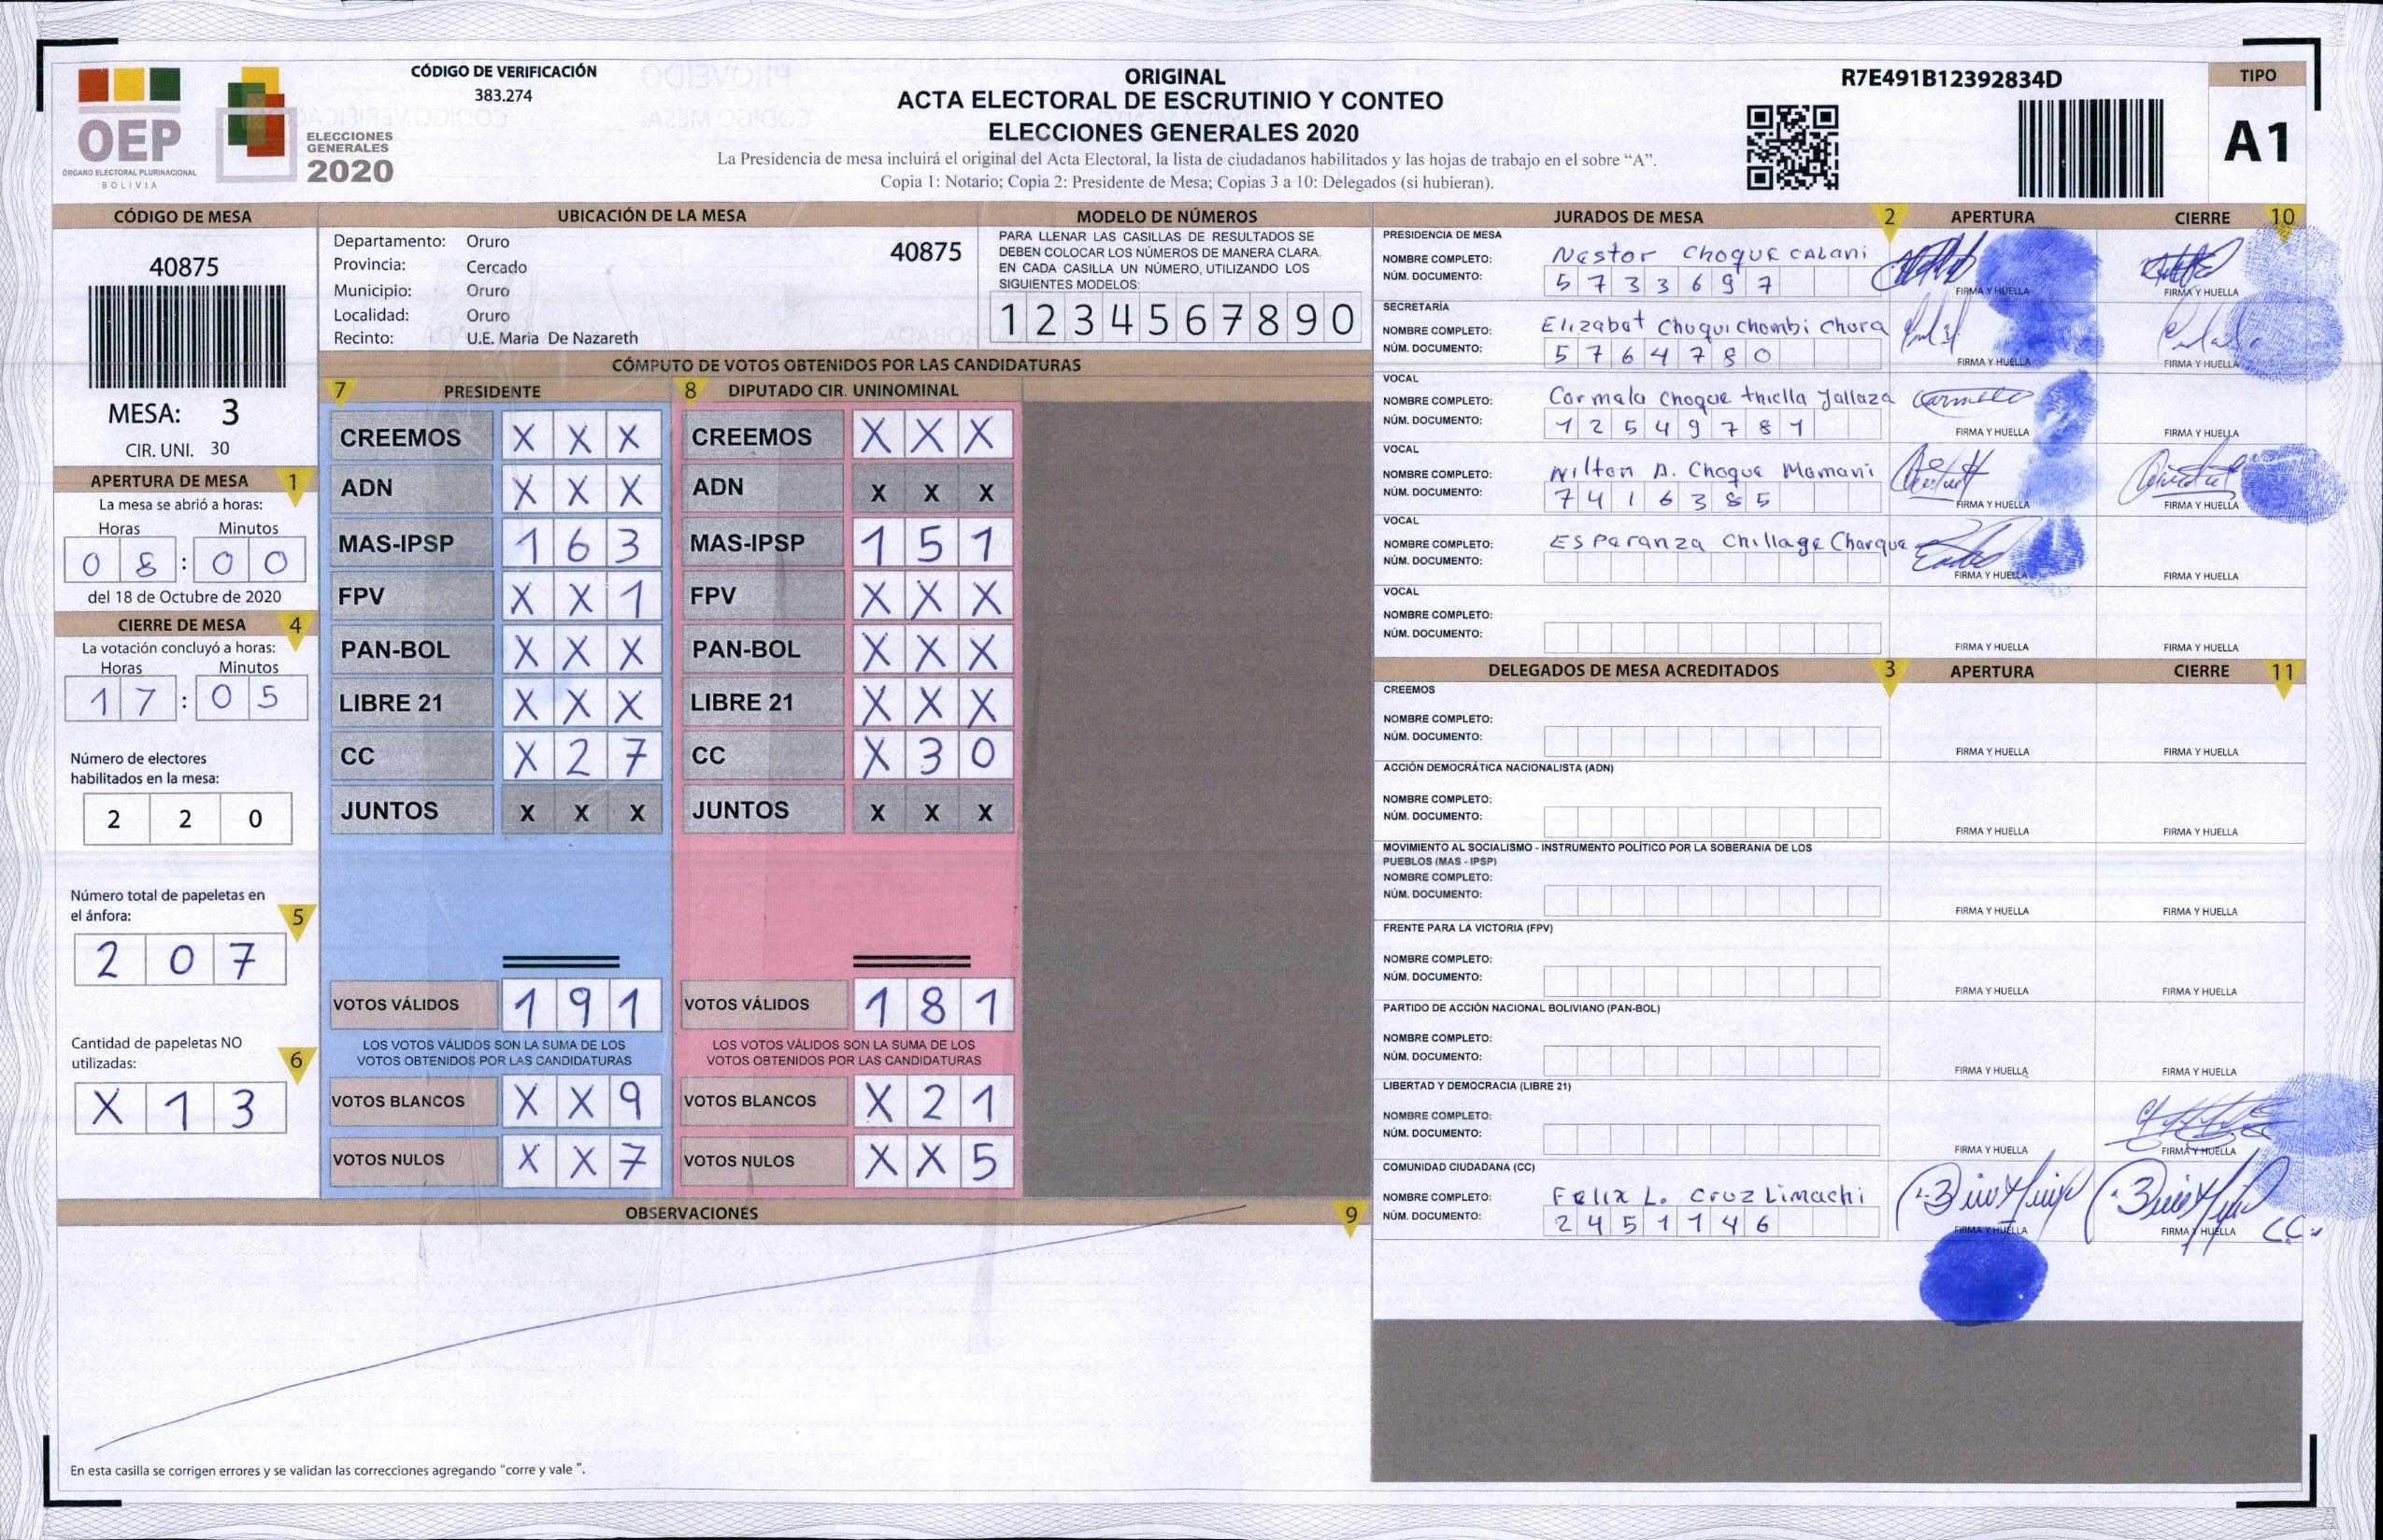 CÓDIGO DE VERIFICACIÓN
383.274
OEP
ÓRGANO ELECTORAL PLURINACIONAL
BOLIVIA
ELECCIONES
GENERALES
2020
ORIGINAL
ACTA ELECTORAL DE ESCRUTINIO Y CONTEO
ELECCIONES GENERALES 2020
La Presidencia de mesa incluirá el original del Acta Electoral, la lista de ciudadanos habilitados y las hojas de trabajo en el sobre “A”.
Copia 1: Notario; Copia 2: Presidente de Mesa; Copias 3 a 10: Delegados (si hubieran).
R7E491B12392834D
TIPO
A1
CÓDIGO DE MESA
40875
MESA: 3
CIR. UNI. 30
APERTURA DE MESA 1
La mesa se abrió a horas:
Horas Minutos
0 8 : 0 0
del 18 de Octubre de 2020
CIERRE DE MESA 4
La votación concluyó a horas:
Horas Minutos
1 7 : 0 5
Número de electores
habilitados en la mesa:
2 2 0
Número total de papeletas en
el ánfora:
5
2 0 7
Cantidad de papeletas NO
utilizadas:
6
X 1 3
UBICACIÓN DE LA MESA
Departamento: Oruro
40875
Provincia: Cercado
Municipio: Oruro
Localidad: Oruro
Recinto: U.E. Maria De Nazareth
MODELO DE NÚMEROS
PARA LLENAR LAS CASILLAS DE RESULTADOS SE
DEBEN COLOCAR LOS NÚMEROS DE MANERA CLARA.
EN CADA CASILLA UN NÚMERO, UTILIZANDO LOS
SIGUIENTES MODELOS:
1 2 3 4 5 6 7 8 9 0
CÓMPUTO DE VOTOS OBTENIDOS POR LAS CANDIDATURAS
7 PRESIDENTE
CREEMOS X X X
ADN X X X
MAS-IPSP 1 6 3
FPV X X 1
PAN-BOL X X X
LIBRE 21 X X X
CC X 2 7
JUNTOS X X X
VOTOS VÁLIDOS 1 9 1
LOS VOTOS VÁLIDOS SON LA SUMA DE LOS
VOTOS OBTENIDOS POR LAS CANDIDATURAS
VOTOS BLANCOS X X 9
VOTOS NULOS X X 7
8 DIPUTADO CIR. UNINOMINAL
CREEMOS X X X
ADN X X X
MAS-IPSP 1 5 1
FPV X X X
PAN-BOL X X X
LIBRE 21 X X X
CC X 3 0
JUNTOS X X X
VOTOS VÁLIDOS 1 8 1
LOS VOTOS VÁLIDOS SON LA SUMA DE LOS
VOTOS OBTENIDOS POR LAS CANDIDATURAS
VOTOS BLANCOS X 2 1
VOTOS NULOS X X 5
OBSERVACIONES 9
En esta casilla se corrigen errores y se validan las correcciones agregando “corre y vale ”.
JURADOS DE MESA 2 APERTURA CIERRE 10
PRESIDENCIA DE MESA
NOMBRE COMPLETO: Nestor Choque Calani
NÚM. DOCUMENTO: 5 7 3 3 6 9 7
FIRMA Y HUELLA FIRMA Y HUELLA
SECRETARÍA
NOMBRE COMPLETO: Elizabat Choquichambi Chura
NÚM. DOCUMENTO: 5 7 6 4 7 8 0
FIRMA Y HUELLA FIRMA Y HUELLA
VOCAL
NOMBRE COMPLETO: Carmala Choque
NÚM. DOCUMENTO: 1 2 5 4 9 7 8 1
FIRMA Y HUELLA FIRMA Y HUELLA
VOCAL
NOMBRE COMPLETO: Wilton A. Choque Mamani
NÚM. DOCUMENTO: 7 4 1 6 3 8 5
FIRMA Y HUELLA FIRMA Y HUELLA
VOCAL
NOMBRE COMPLETO: Esparanza Chillage Charque
NÚM. DOCUMENTO:
FIRMA Y HUELLA FIRMA Y HUELLA
VOCAL
NOMBRE COMPLETO:
NÚM. DOCUMENTO:
FIRMA Y HUELLA FIRMA Y HUELLA
DELEGADOS DE MESA ACREDITADOS 3 APERTURA CIERRE 11
CREEMOS
NOMBRE COMPLETO:
NÚM. DOCUMENTO:
FIRMA Y HUELLA FIRMA Y HUELLA
ACCIÓN DEMOCRÁTICA NACIONALISTA (ADN)
NOMBRE COMPLETO:
NÚM. DOCUMENTO:
FIRMA Y HUELLA FIRMA Y HUELLA
MOVIMIENTO AL SOCIALISMO - INSTRUMENTO POLÍTICO POR LA SOBERANIA DE LOS
PUEBLOS (MAS - IPSP)
NOMBRE COMPLETO:
NÚM. DOCUMENTO:
FIRMA Y HUELLA FIRMA Y HUELLA
FRENTE PARA LA VICTORIA (FPV)
NOMBRE COMPLETO:
NÚM. DOCUMENTO:
FIRMA Y HUELLA FIRMA Y HUELLA
PARTIDO DE ACCIÓN NACIONAL BOLIVIANO (PAN-BOL)
NOMBRE COMPLETO:
NÚM. DOCUMENTO:
FIRMA Y HUELLA FIRMA Y HUELLA
LIBERTAD Y DEMOCRACIA (LIBRE 21)
NOMBRE COMPLETO:
NÚM. DOCUMENTO:
FIRMA Y HUELLA FIRMA Y HUELLA
COMUNIDAD CIUDADANA (CC)
NOMBRE COMPLETO: Felix L. Cruz Limachi
NÚM. DOCUMENTO: 2 4 5 1 1 4 6
FIRMA Y HUELLA FIRMA Y HUELLA